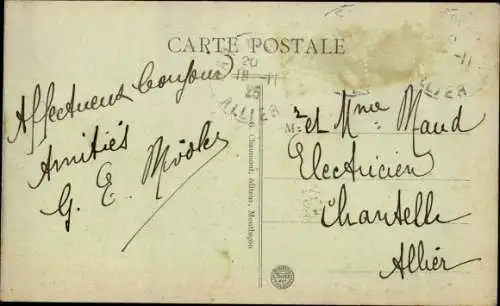 CARTE POSTALE
Affectueux bonjour
Amitiés
G. E.
20
18 -11
25
ALLIER
ALLIER
M
r et Mme Maud
Electricien
Chantelle
Allier
Chaumont, éditeur, Montluçon